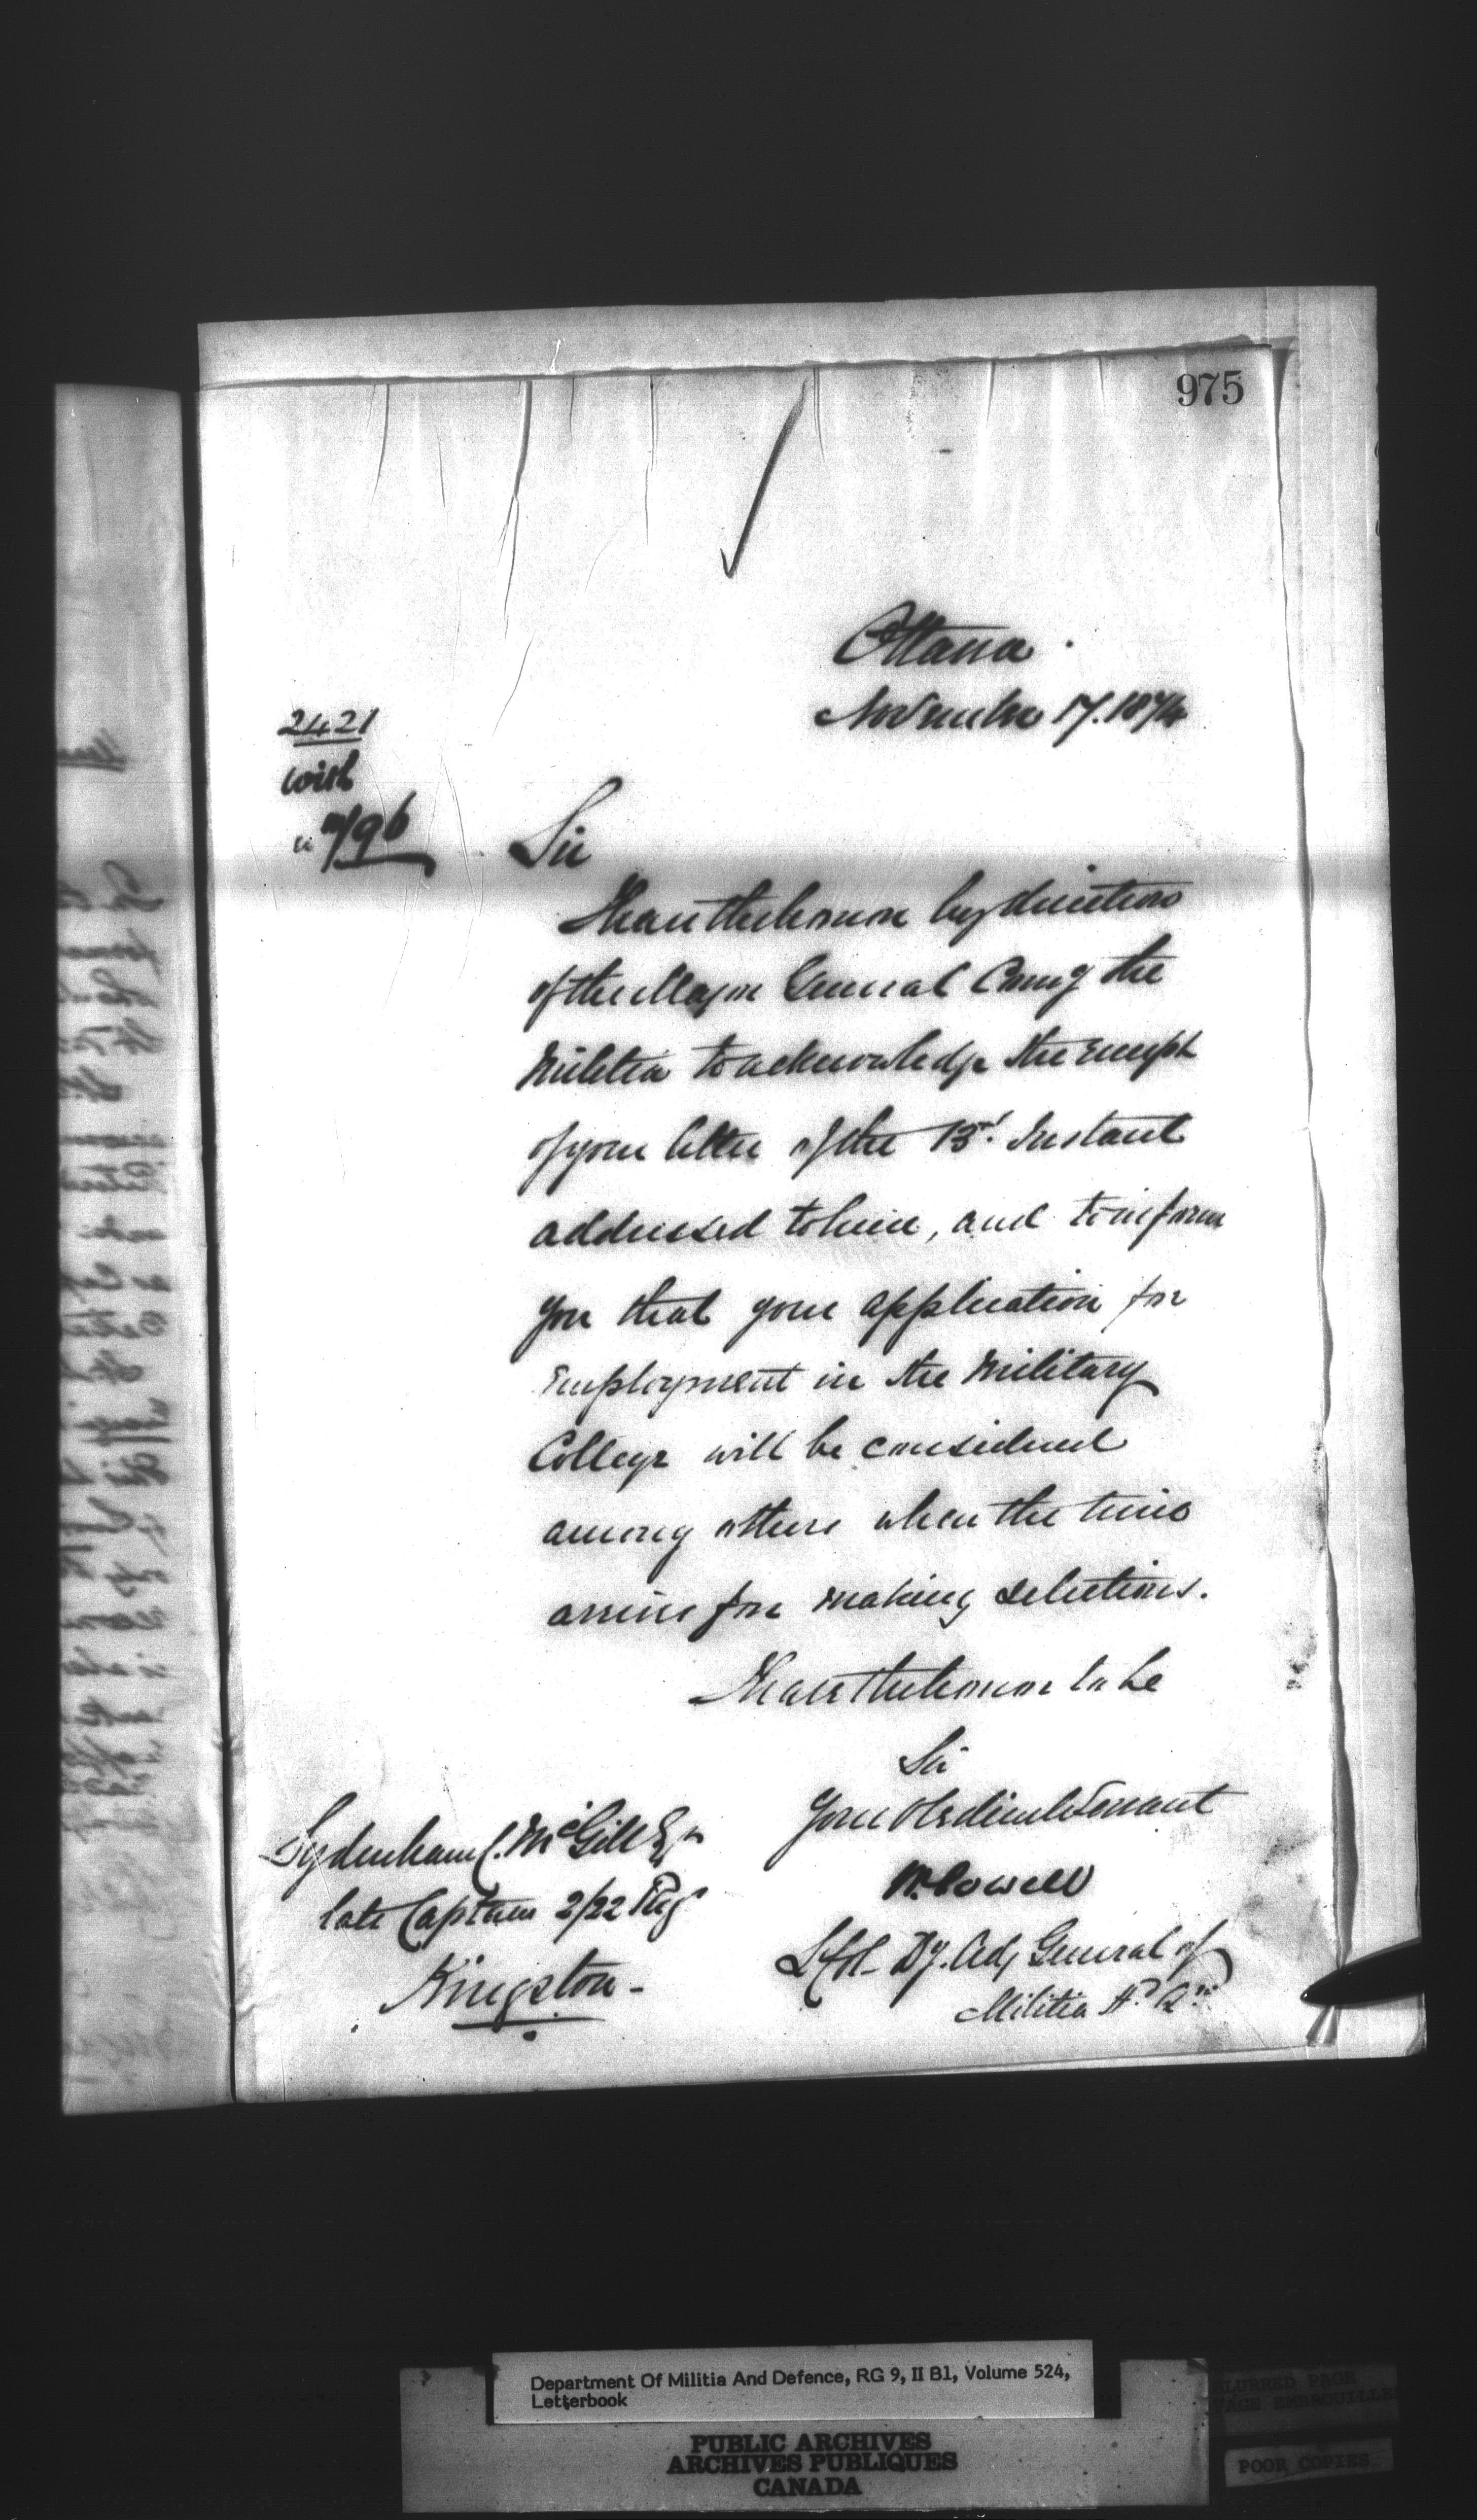 975
Ottawa
November 17. 1874
2421
with
a m/96
Sir
I have the honor by direction
of the Major General Comg the
Militia to acknowledge the receipt
of your letter of the 13th Instant
addressed to him, and to inform
you that your application for
Employment in the Military
College will be considered
among others when the time
arrives for making selections.
I have the honor to be
Sir
Your Obedient Servant
W. Powell
Lt Col. Dy. Adj General of
Militia Hd Qrs
Sydenham C. McGill Esqr
late Captain 2/22 Regt
Kingston -
Department Of Militia And Defence, RG 9, II B1, Volume 524,
Letterbook
PUBLIC ARCHIVES
ARCHIVES PUBLIQUES
CANADA
BLURRED PAGE
PAGE EMBROUILLEE
POOR COPIES